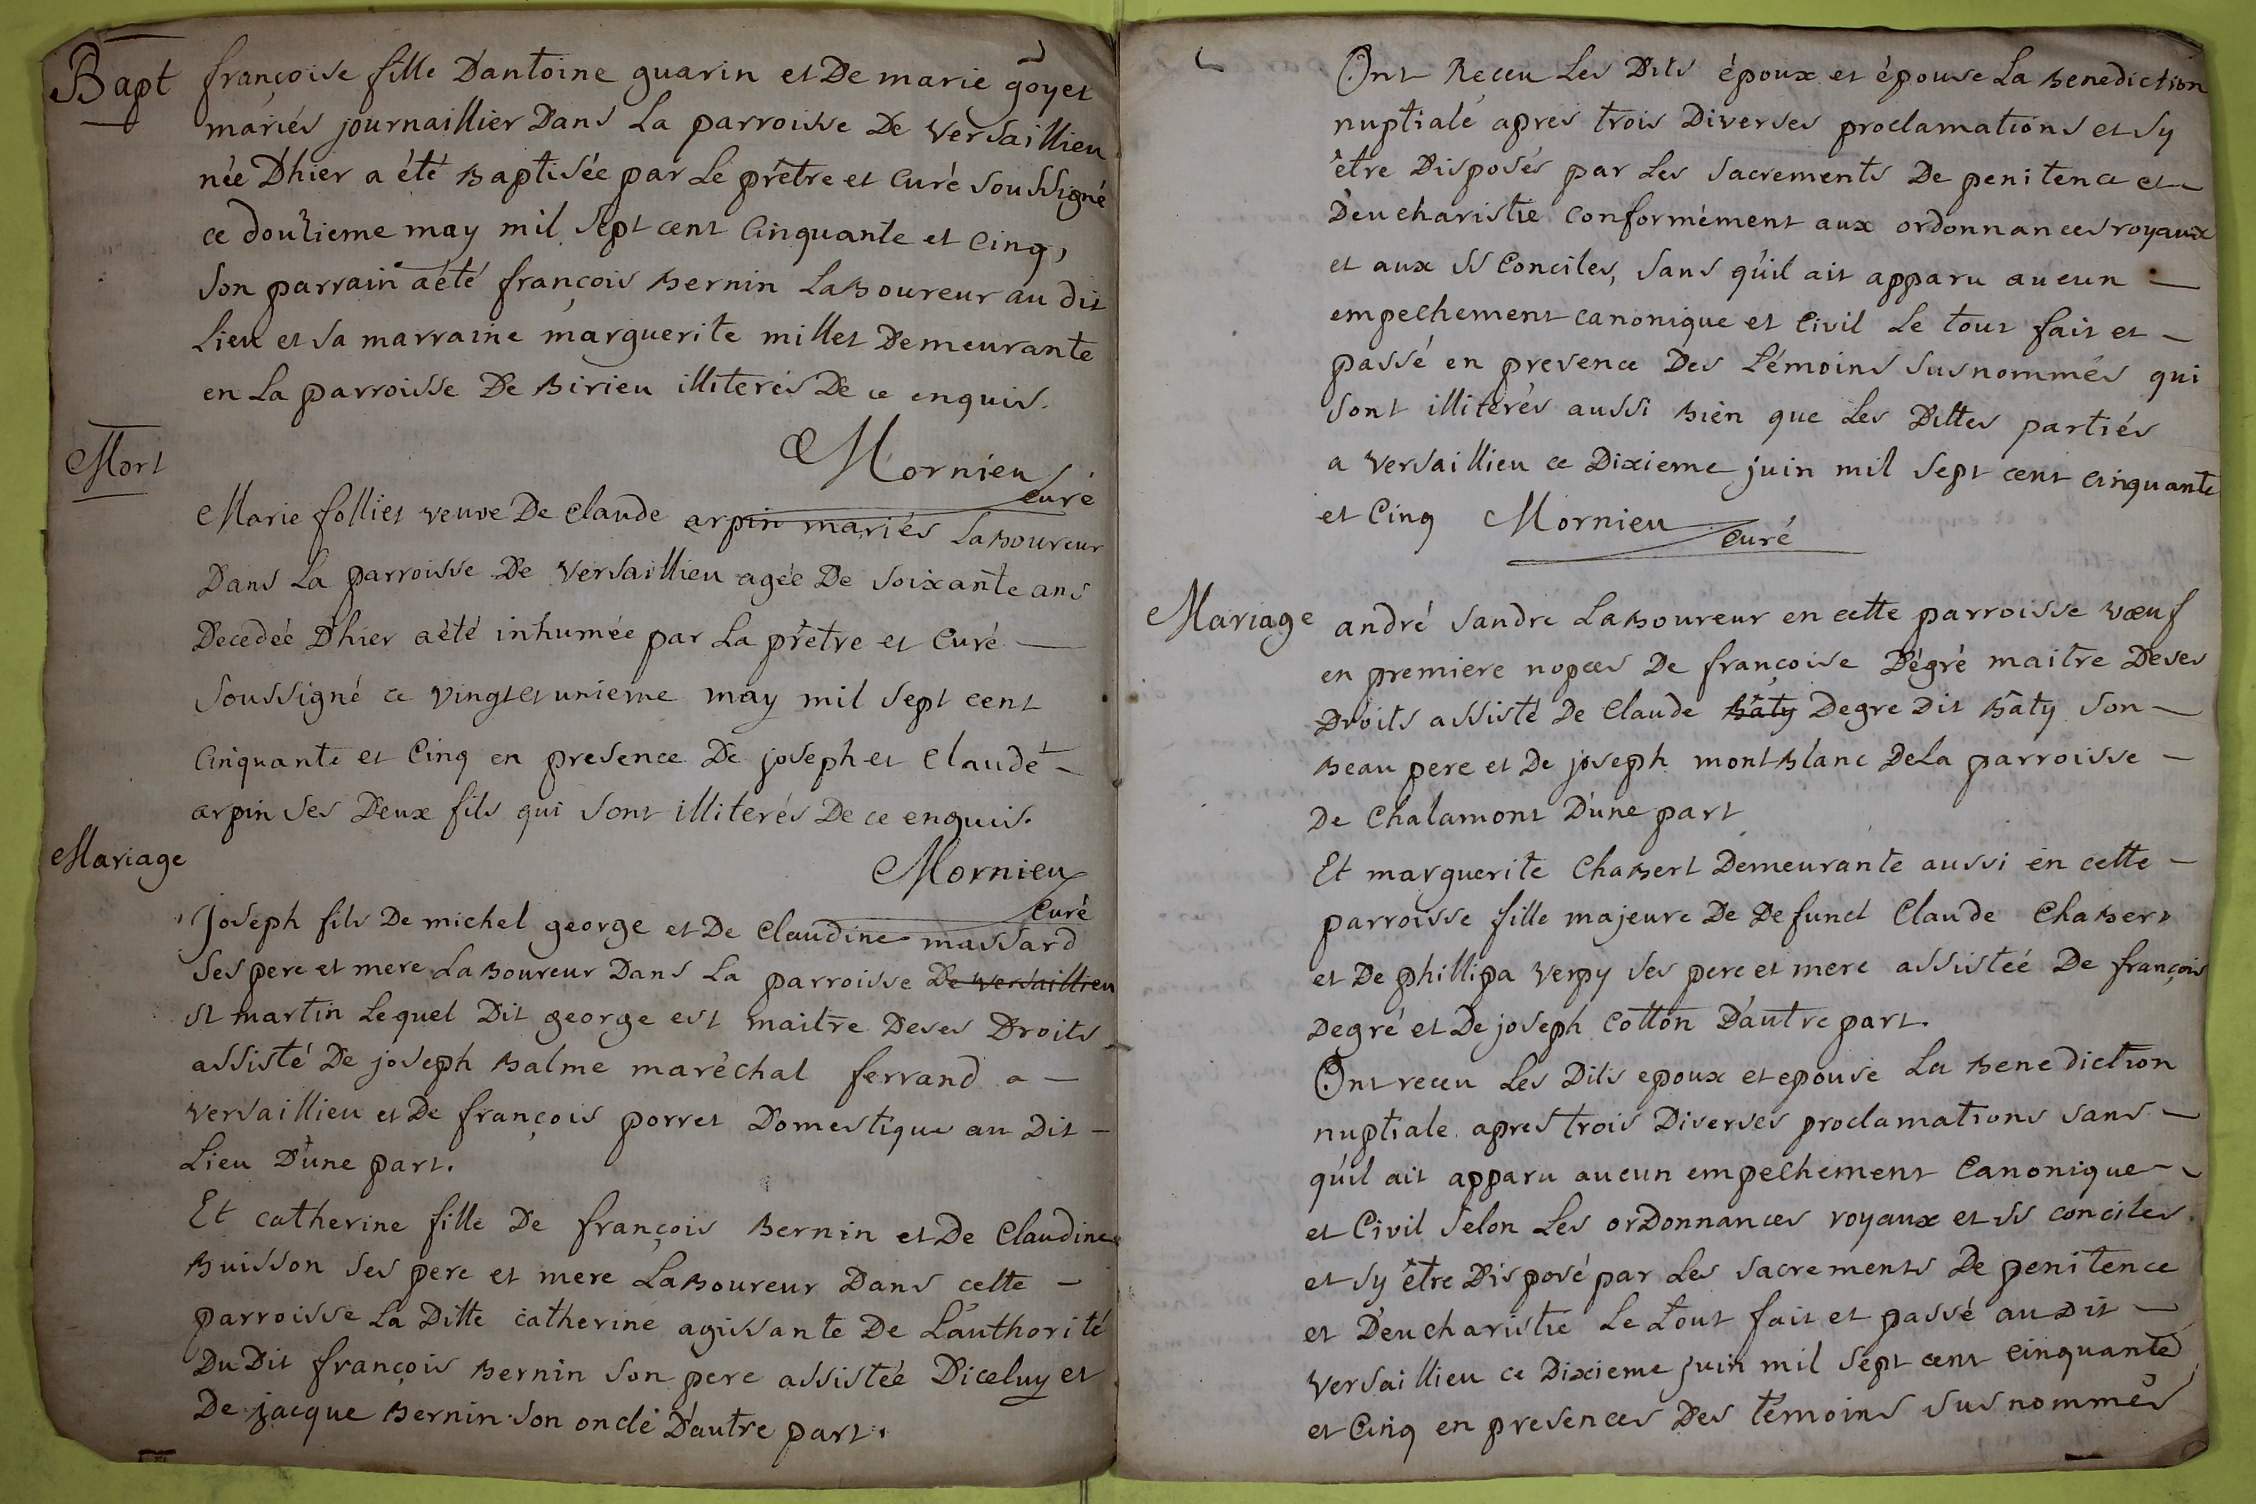 Bapt
françoise fille D'antoine guarin et De marie goyet
mariés journaillier Dans La parroisse De Versaillieu
née D'hier a été Baptisée par Le prêtre et Curé soussigné
ce douzieme may mil sept cent Cinquante et Cinq,
Son parrain a été françois Bernin LaBoureur au dit
Lieu et sa marraine marguerite millet Demeurante
en La parroisse De Birieu illiterés De ce enquis.
Mornieu
Curé
Mort
Marie folliet veuve De Claude arpin mariés LaBoureur
Dans La parroisse De Versaillieu agée De soixante ans
Decedée D'hier a été inhumée par La prêtre et Curé
Soussigné ce vingt et unieme may mil sept cent
Cinquante et Cinq en presence De joseph et Claude
arpin ses Deux fils qui sont illiterés De ce enquis.
Mornieu
Curé
Mariage
Joseph fils De michel george et De Claudine massard
Ses pere et mere LaBoureur Dans La parroisse De Versaillieu
st martin Lequel Dit george est maitre De ses Droits
assisté De joseph Balme maréchal ferrand a
Versaillieu et De françois porret Domestique au Dit
Lieu D'une part.
Et catherine fille De françois Bernin et De Claudine
Buisson ses pere et mere LaBoureur Dans cette
parroisse La Ditte catherine agissante De L'authorité
Du Dit françois Bernin son pere assistée D'iceluy et
De jacque Bernin son oncle D'autre part.
Ont Receu Les Dits époux et épouse La Benediction
nuptiale apres trois Diverses proclamations et sy
être Disposés par Les sacrements De penitence et
D'eucharistie conformément aux ordonnances royaux
et aux SS Conciles, sans qu'il ait apparu aucun
empechement canonique et Civil Le tout fait et
passé en presence Des témoins susnommés qui
sont illiterés aussi Bien que Les Dittes parties
a Versaillieu ce Dixieme juin mil sept cent cinquante
et Cinq Mornieu
Curé
Mariage
andré sandre LaBoureur en cette parroisse vœuf
en premiere nopces De françoise Dégré maitre De ses
Droits assisté De Claude Bâty Degre Dit Bâty son
Beau pere et De joseph montBlanc De La parroisse
De Chalamont D'une part
Et marguerite ChaBert Demeurante aussi en cette
parroisse fille majeure De Defunct Claude ChaBert
et De phillipa verpy ses pere et mere assistée De françois
Degré et De joseph Cotton D'autre part.
Ont receu Les Dits epoux et epouse La Benediction
nuptiale apres trois Diverses proclamations sans
qu'il ait apparu aucun empechement Canonique
et Civil selon Les orDonnances royaux et SS conciles
et sy être Disposé par Les sacrements De penitence
et D'eucharistie Le tout fait et passé au Dit
Versaillieu ce Dixieme juin mil sept cent cinquante
et Cinq en presences Des témoins susnommés